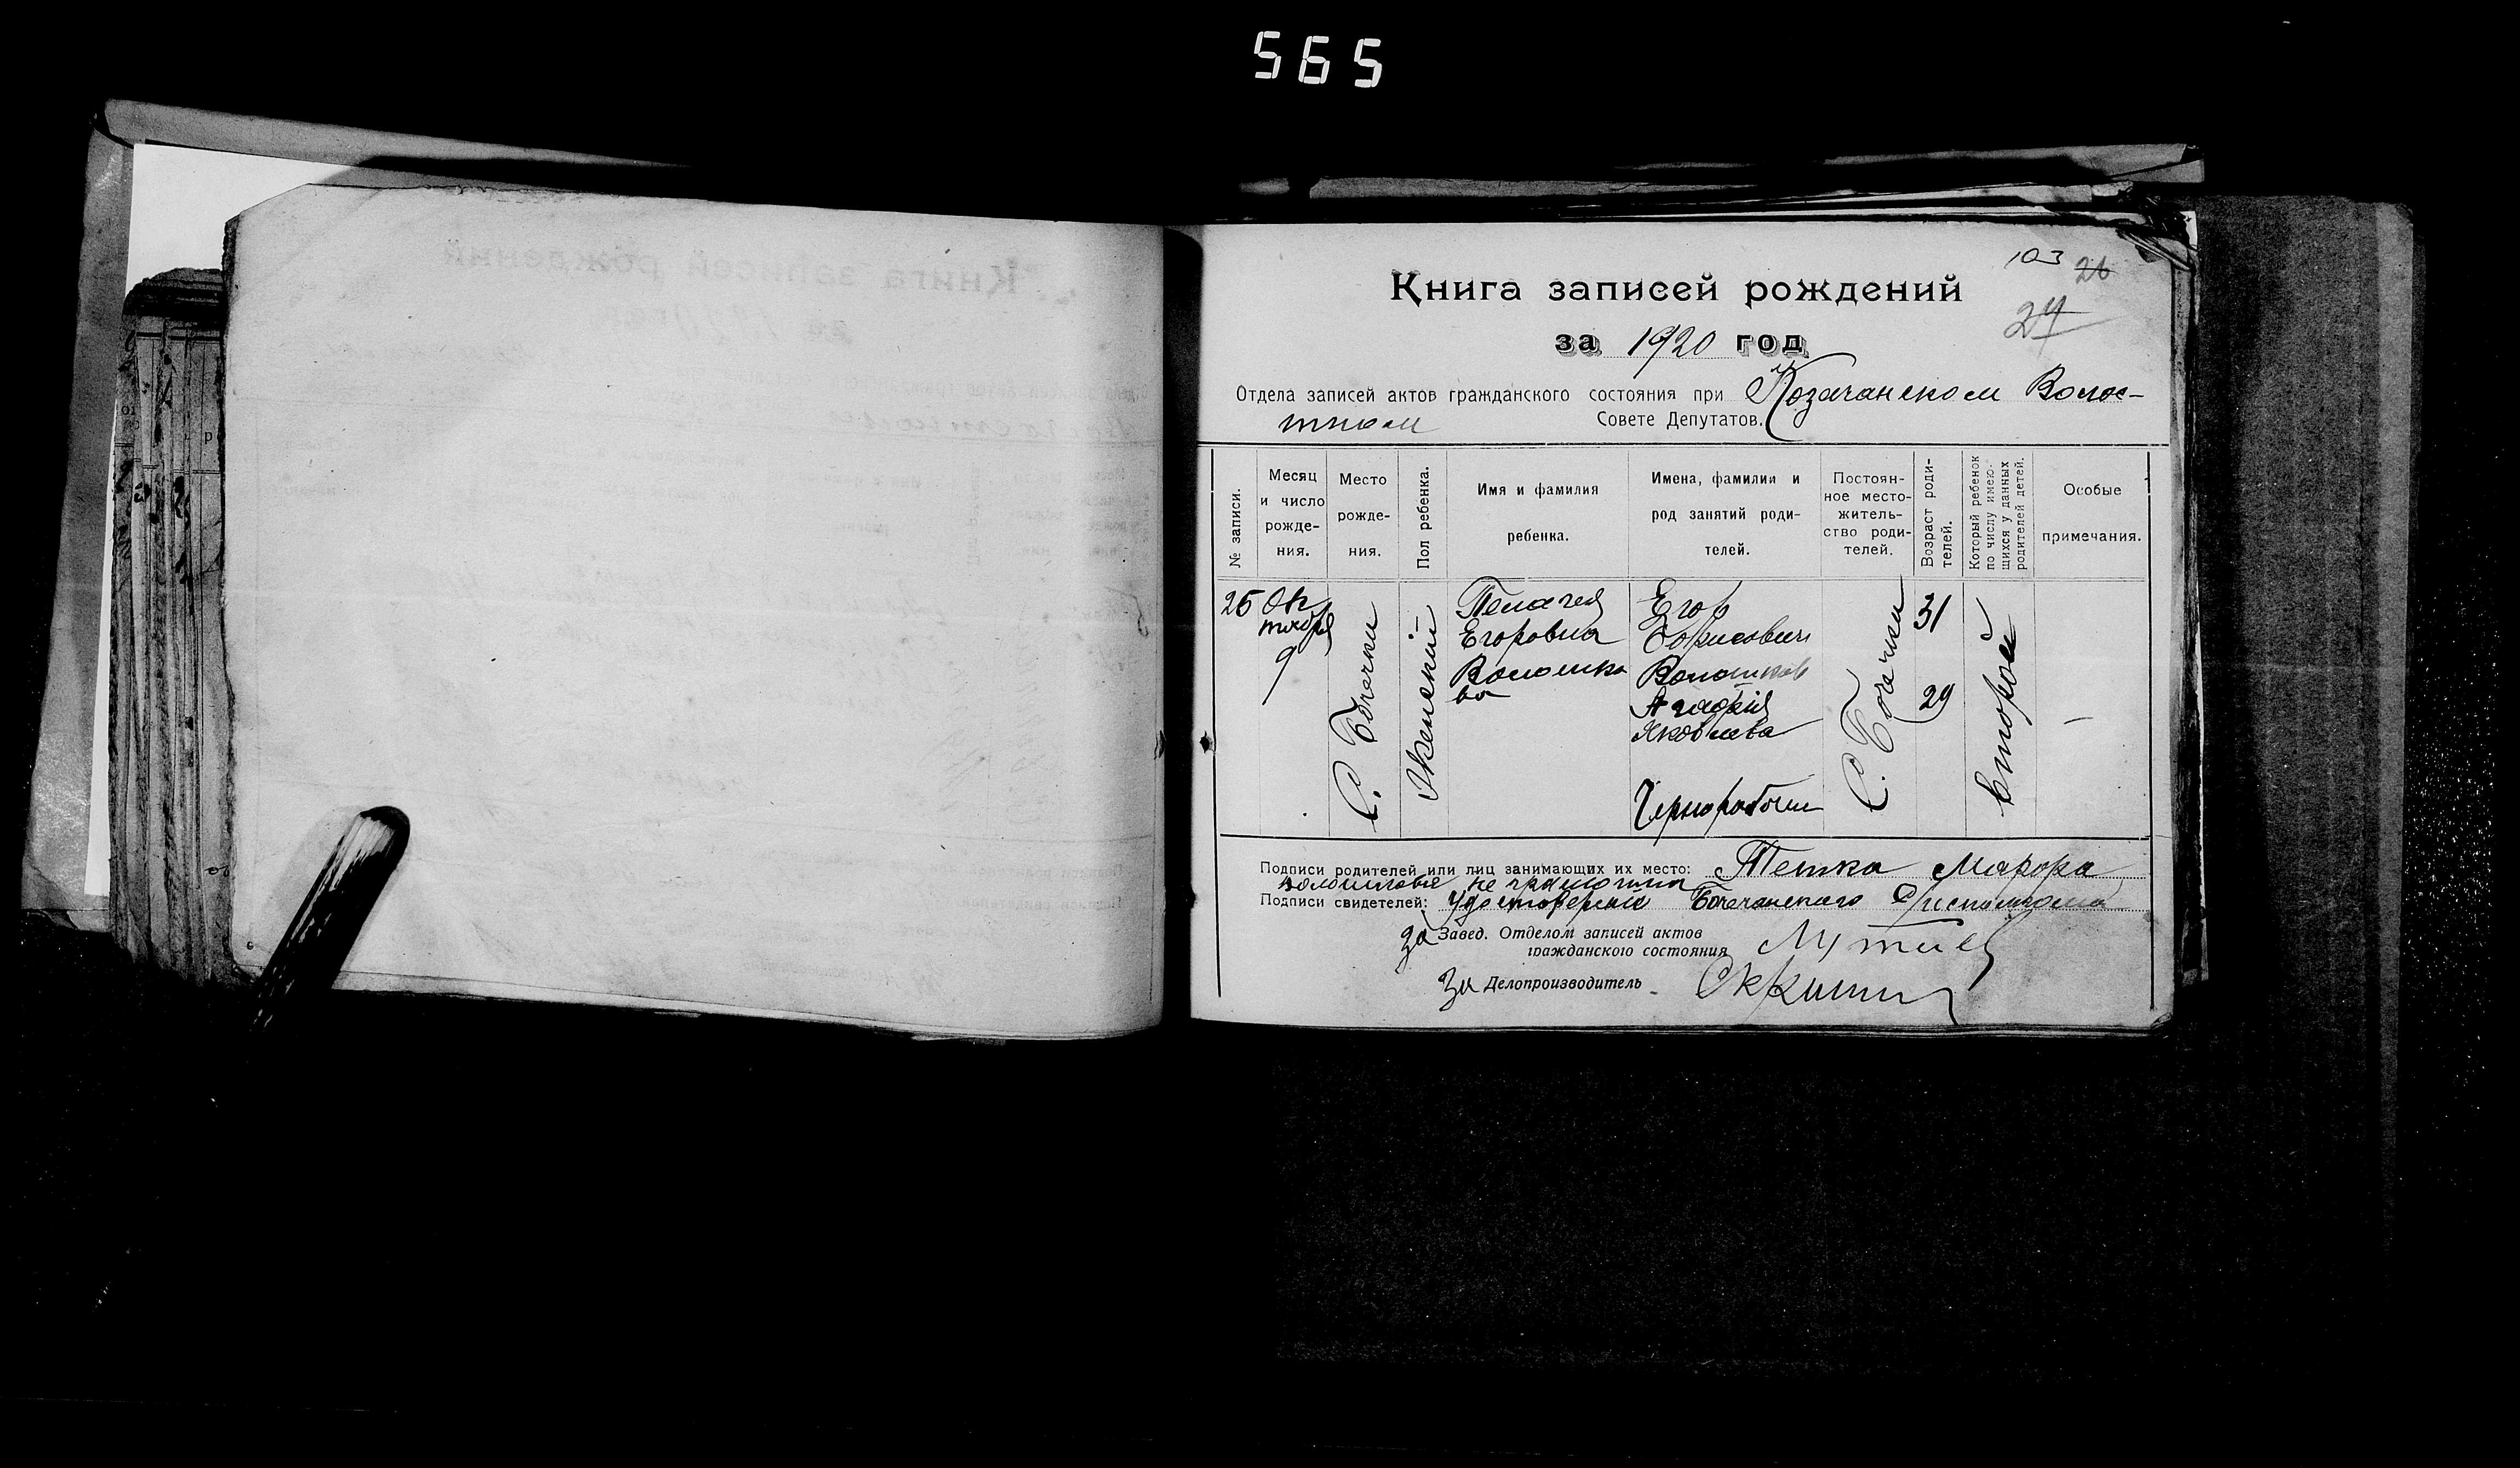 565
103 26
24
Книга записей рождений
за 1920 год
Отдела записей актов гражданского состояния при Козачанском Волос-
тном Совете Депутатов.
№ записи.
Месяц и число рожде- ния.
Место рожде- ния.
Пол ребенка.
Имя и фамилия ребенка.
Имена, фамилии и род занятий роди- телей.
Постоян- ное место- житель- ство роди- телей.
Возраст роди- телей.
Который ребенок по числу имею- щихся у данных родителей детей.
Особые примечания.
25
Ок
тября
9
С. Бочечки
Женский
Пелагея
Егоровна
Волошко
ва
Егор
Борисович
Волошков
Агафия
Яковлева
Чернорабочии
С. Бочечки
31
29
второй
—
Подписи родителей или лиц занимающих их место: Тетка Марфа
Волошкова не грамотна
Подписи свидетелей: Удостоверение Бочечанского
За Завед. Отделом записей актов
гражданского состояния
За Делопроизводитель